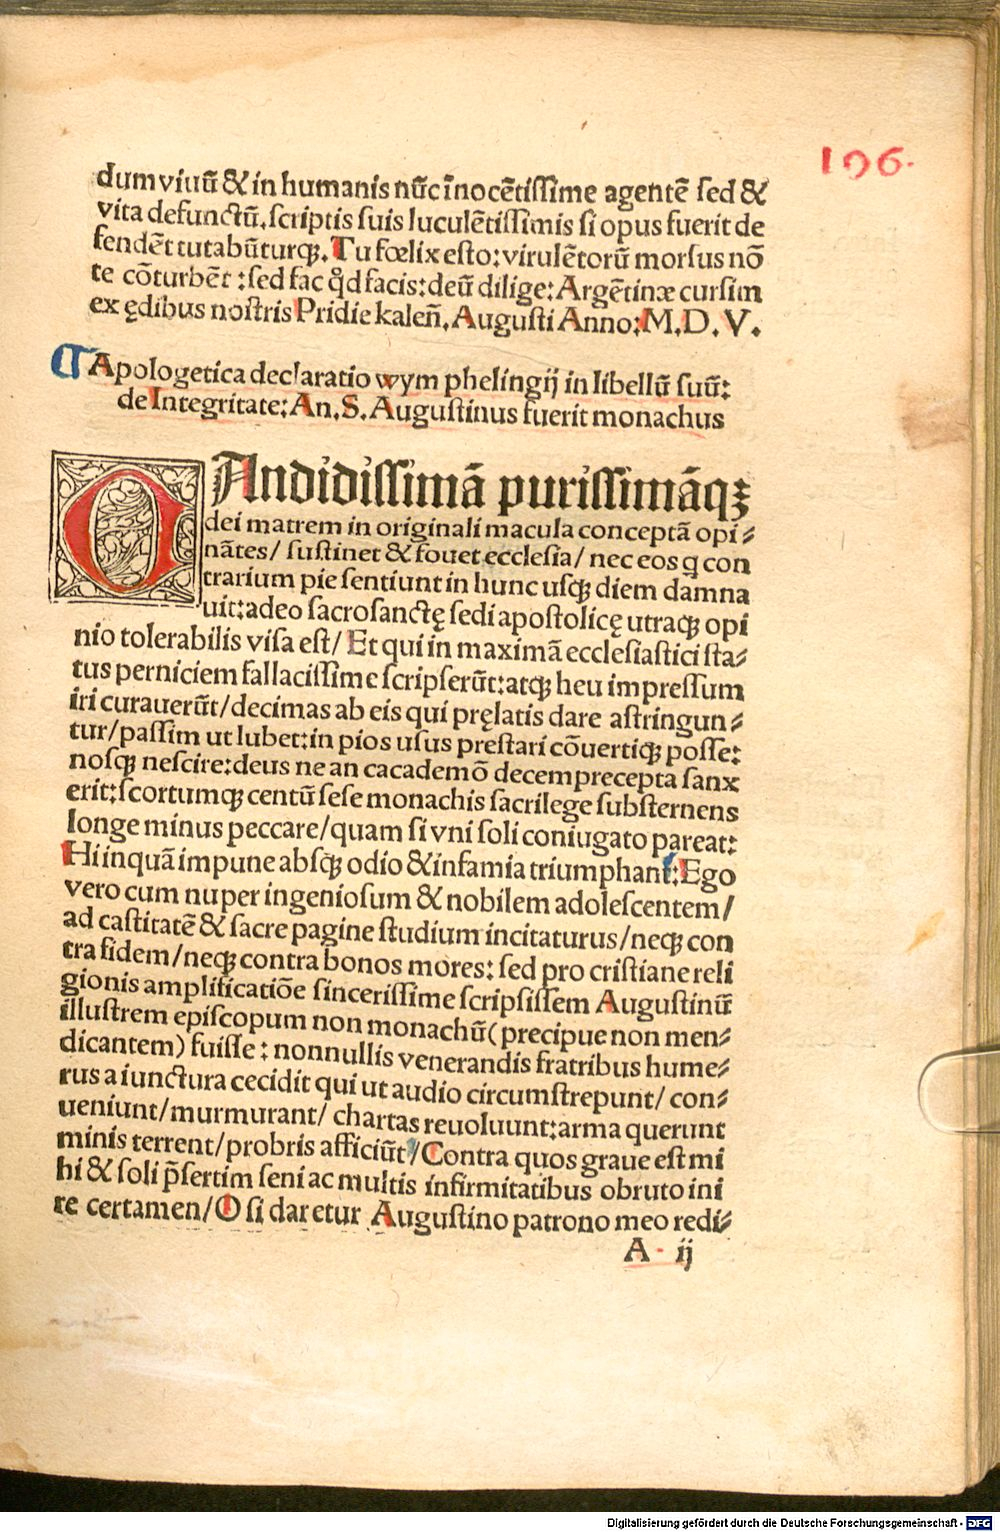 196.
dum viuū & in humanis nūc īnocētissime agentē sed &
vita defunctū, scriptis suis luculētissimis si opus fuerit de
fendēt tutabūturq;. Tu fœlix esto: virulētorū morsus nō
te cōturbēt: sed fac qd̄ facis: deū dilige: Argētinæ cursim
ex ędibus nostris Pridie kaleñ. Augusti Anno: M.D.V.
¶ Apologetica declaratio wymphelingij in libellū suū:
de Integritate: An. S. Augustinus fuerit monachus
CAndidissimā purissimāq;
dei matrem in originali macula conceptā opi⸗
nātes/ sustinet & fouet ecclesia/ nec eos q con
trarium pie sentiunt in hunc usq; diem damna
uit: adeo sacrosanctę sedi apostolicę utraq; opi
nio tolerabilis visa est/ Et qui in maximā ecclesiastici sta⸗
tus perniciem fallacissime scripserūt: atq; heu impressum
iri curauerūt/ decimas ab eis qui pręlatis dare astringun⸗
tur/ passim ut lubet: in pios usus prestari cōuertiq; posse:
nosq; nescire: deus ne an cacademō decem precepta sanx
erit: scortumq; centū sese monachis sacrilege substernens
longe minus peccare/ quam si vni soli coniugato pareat:
Hi inquā impune absq; odio & infamia triumphant: Ego
vero cum nuper ingeniosum & nobilem adolescentem/
ad castitatē & sacre pagine studium incitaturus/ neq; con
tra fidem/ neq; contra bonos mores: sed pro cristiane reli
gionis amplificatiōe sincerissime scripsissem Augustinū
illustrem episcopum non monachū (precipue non men⸗
dicantem) fuisse: nonnullis venerandis fratribus hume⸗
rus a iunctura cecidit qui ut audio circumstrepunt/ con⸗
ueniunt/ murmurant/ chartas reuoluunt: arma querunt
minis terrent/ probris afficiūt/ Contra quos graue est mi
hi & soli p̄sertim seni ac multis infirmitatibus obruto ini
re certamen/ O si daretur Augustino patrono meo redi⸗
A ij
Digitalisierung gefördert durch die Deutsche Forschungsgemeinschaft - DFG